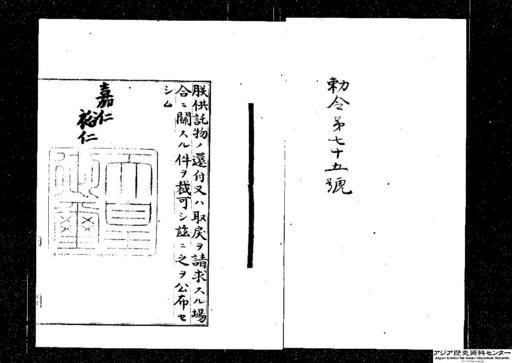 勅令第七十五號
朕供託物ノ還付又ハ取戾ヲ請求スル場
合ニ關スル件ヲ裁可シ茲ニ之ヲ公布セ
シム
嘉仁
裕仁
アジア歴史資料センター
Japan Center for Asian Historical Records